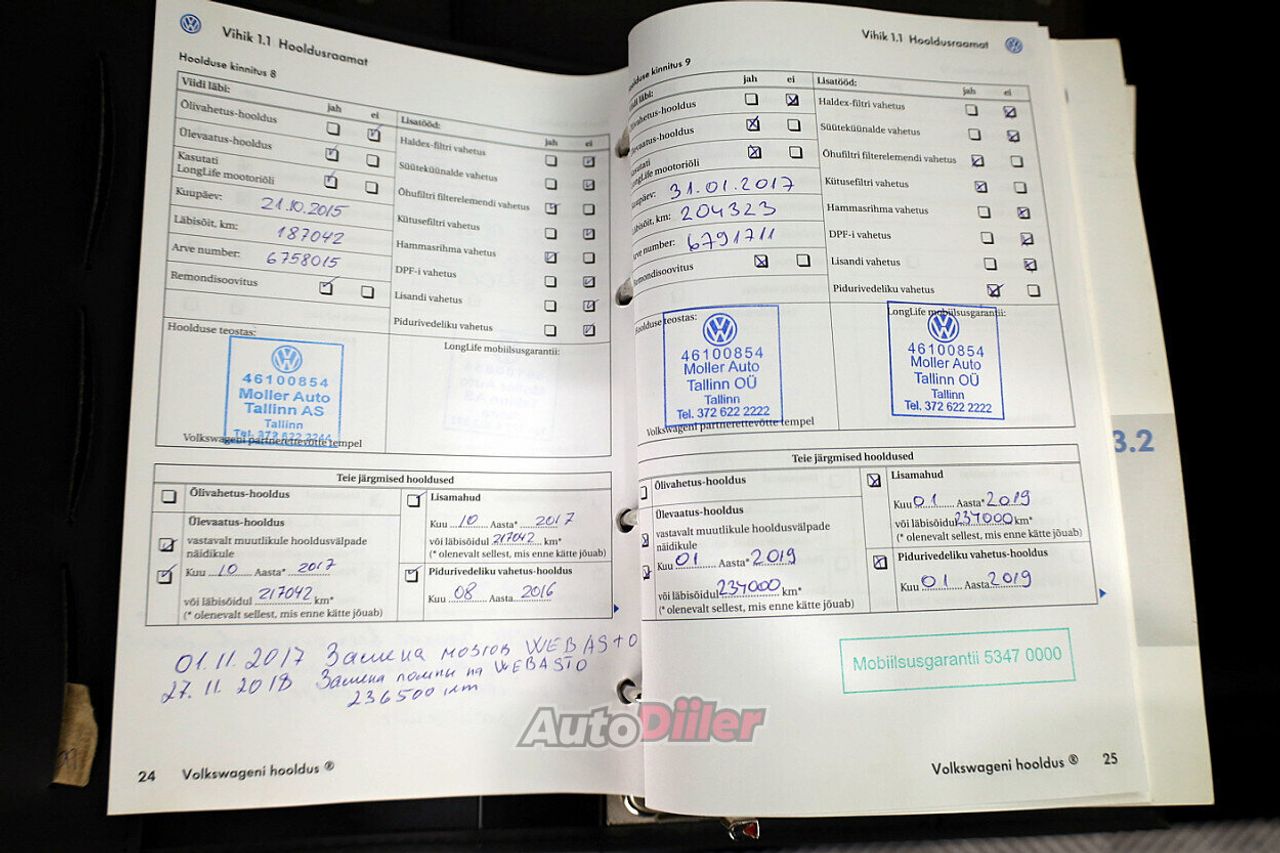 Vihik 1.1 Hooldusraamat
Hoolduse kinnitus 8
Viidi läbi:
jah ei
Õlivahetus-hooldus
Ülevaatus-hooldus
Kasutati
LongLife mootoriõli
Kuupäev: 21.10.2015
Läbisõit, km: 187042
Arve number: 6758015
Remondisoovitus
Lisatööd:
jah ei
Haldex-filtri vahetus
Süüteküünalde vahetus
Õhufiltri filterelemendi vahetus
Kütusefiltri vahetus
Hammasrihma vahetus
DPF-i vahetus
Lisandi vahetus
Pidurivedeliku vahetus
Hoolduse teostas:
46100854
Moller Auto
Tallinn AS
Tallinn
Tel. 372 622 2244
Volkswageni partnerettevõtte tempel
LongLife mobiilsusgarantii:
Teie järgmised hooldused
Õlivahetus-hooldus
Ülevaatus-hooldus
vastavalt muutlikule hooldusvälpade
näidikule
Kuu 10 Aasta* 2017
või läbisõidul 217042 km*
(* olenevalt sellest, mis enne kätte jõuab)
Lisamahud
Kuu 10 Aasta* 2017
või läbisõidul 217042 km*
(* olenevalt sellest, mis enne kätte jõuab)
Pidurivedeliku vahetus-hooldus
Kuu 08 Aasta 2016
01.11.2017 Замена мозгов WEBASTO
27.11.2018 Замена помпы на WEBASTO
236500 км
24 Volkswageni hooldus ®
Vihik 1.1 Hooldusraamat
oolduse kinnitus 9
iidi läbi:
jah ei
livahetus-hooldus
levaatus-hooldus
Kasutati
LongLife mootoriõli
uupäev: 31.01.2017
äbisõit, km: 204323
rve number: 6791711
Remondisoovitus
Lisatööd:
jah ei
Haldex-filtri vahetus
Süüteküünalde vahetus
Õhufiltri filterelemendi vahetus
Kütusefiltri vahetus
Hammasrihma vahetus
DPF-i vahetus
Lisandi vahetus
Pidurivedeliku vahetus
Hoolduse teostas:
46100854
Moller Auto
Tallinn OÜ
Tallinn
Tel. 372 622 2222
Volkswageni partnerettevõtte tempel
LongLife mobiilsusgarantii:
46100854
Moller Auto
Tallinn OÜ
Tallinn
Tel. 372 622 2222
Teie järgmised hooldused
Õlivahetus-hooldus
Ülevaatus-hooldus
vastavalt muutlikule hooldusvälpade
näidikule
Kuu 01 Aasta* 2019
või läbisõidul 234000 km*
(* olenevalt sellest, mis enne kätte jõuab)
Lisamahud
Kuu 01 Aasta* 2019
või läbisõidul 237000 km*
(* olenevalt sellest, mis enne kätte jõuab)
Pidurivedeliku vahetus-hooldus
Kuu 01 Aasta 2019
Mobiilsusgarantii 5347 0000
Volkswageni hooldus ® 25
3.2
AutoDiiler